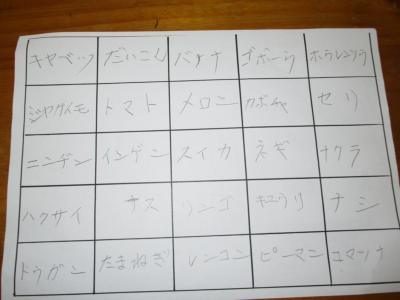 キャベツ だいこん バナナ ゴボーウ ホウレンソウ
ジャガイモ トマト メロン カボチャ セリ
ニンジン インゲン スイカ ネギ オクラ
ハクサイ ナス リンゴ キュウリ ナシ
トウガン たまねぎ レンコン ピーマン コマツナ